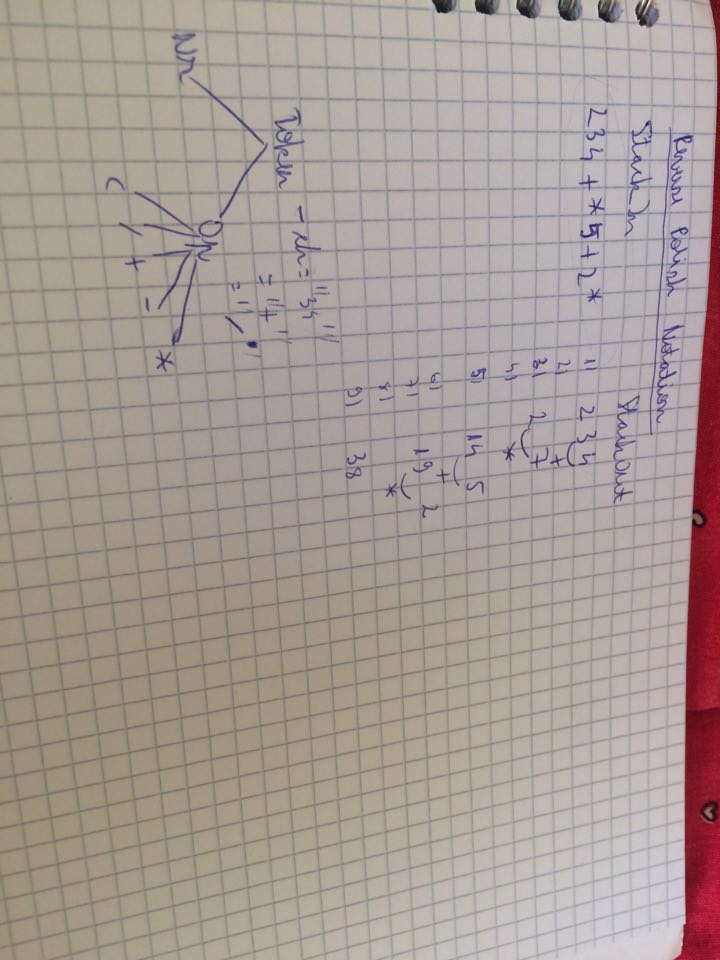 Reverse Polish Notation
StackIn StackOut
234 + * 5 + 2 *
1) 2 3 4
2) +
3) 2 7
4) *
5) 14 5
6) +
7) 19 2
8) *
9) 38
Token - ch = "34"
= "+"
= "/"
Nr Op
( / + - *